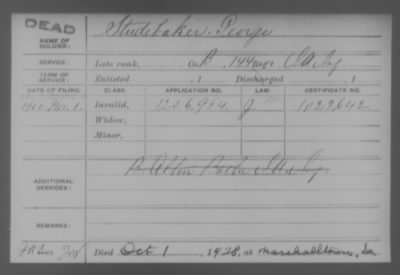 DEAD
NAME OF SOLDIER: Studebaker, George
SERVICE: Late rank, Co. B, 144 Reg't Ind. Inf
TERM OF SERVICE: Enlisted , 1 Discharged , 1
DATE OF FILING. CLASS. APPLICATION NO. LAW. CERTIFICATE NO.
1900 Nov. 1. Invalid, 1256,984 J. 1023,642
Widow,
Minor,
ADDITIONAL SERVICES:
REMARKS:
Died Oct 1, 1928, at Marshalltown, Ia